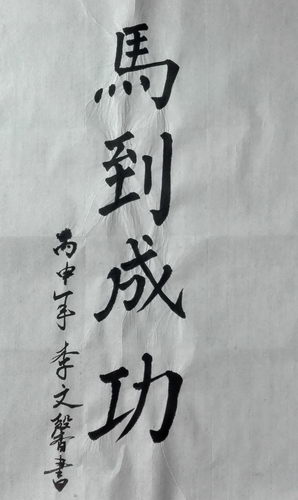 馬到成功
丙申年 李文馨書